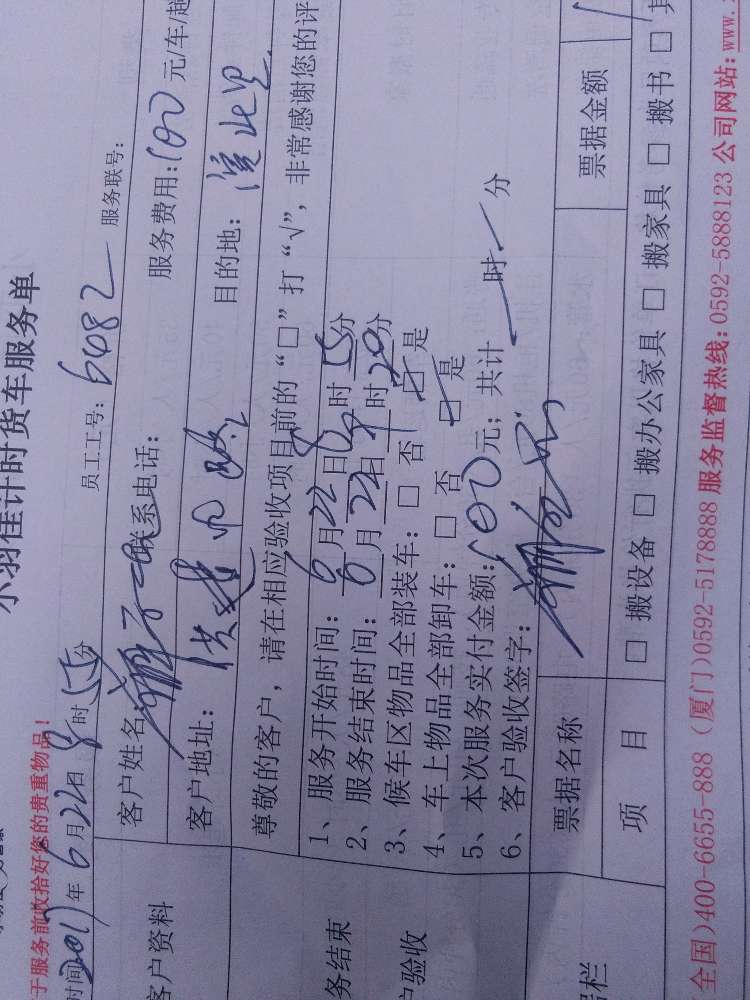 小羽佳计时货车服务单
于服务前收拾好您的贵重物品！
时间 2017年6月22日8时55分 员工工号：6482 服务联号：
客户资料
客户姓名： 联系电话： 服务费用：100元/车/趟
客户地址： 目的地：
尊敬的客户，请在相应验收项目前的“□”打“√”，非常感谢您的评
务结束
户验收
1、服务开始时间：6月22日8时55分
2、服务结束时间：6月22日9时20分
3、候车区物品全部装车：□否 ☑是
4、车上物品全部卸车：□否 ☑是
5、本次服务实付金额：100元；共计 时 分
6、客户验收签字：
票据名称 票据金额
项 目 □搬设备 □搬办公家具 □搬家具 □搬书 □其
栏
全国)400-6655-888（厦门)0592-5178888服务监督热线:0592-5888123公司网站:www.